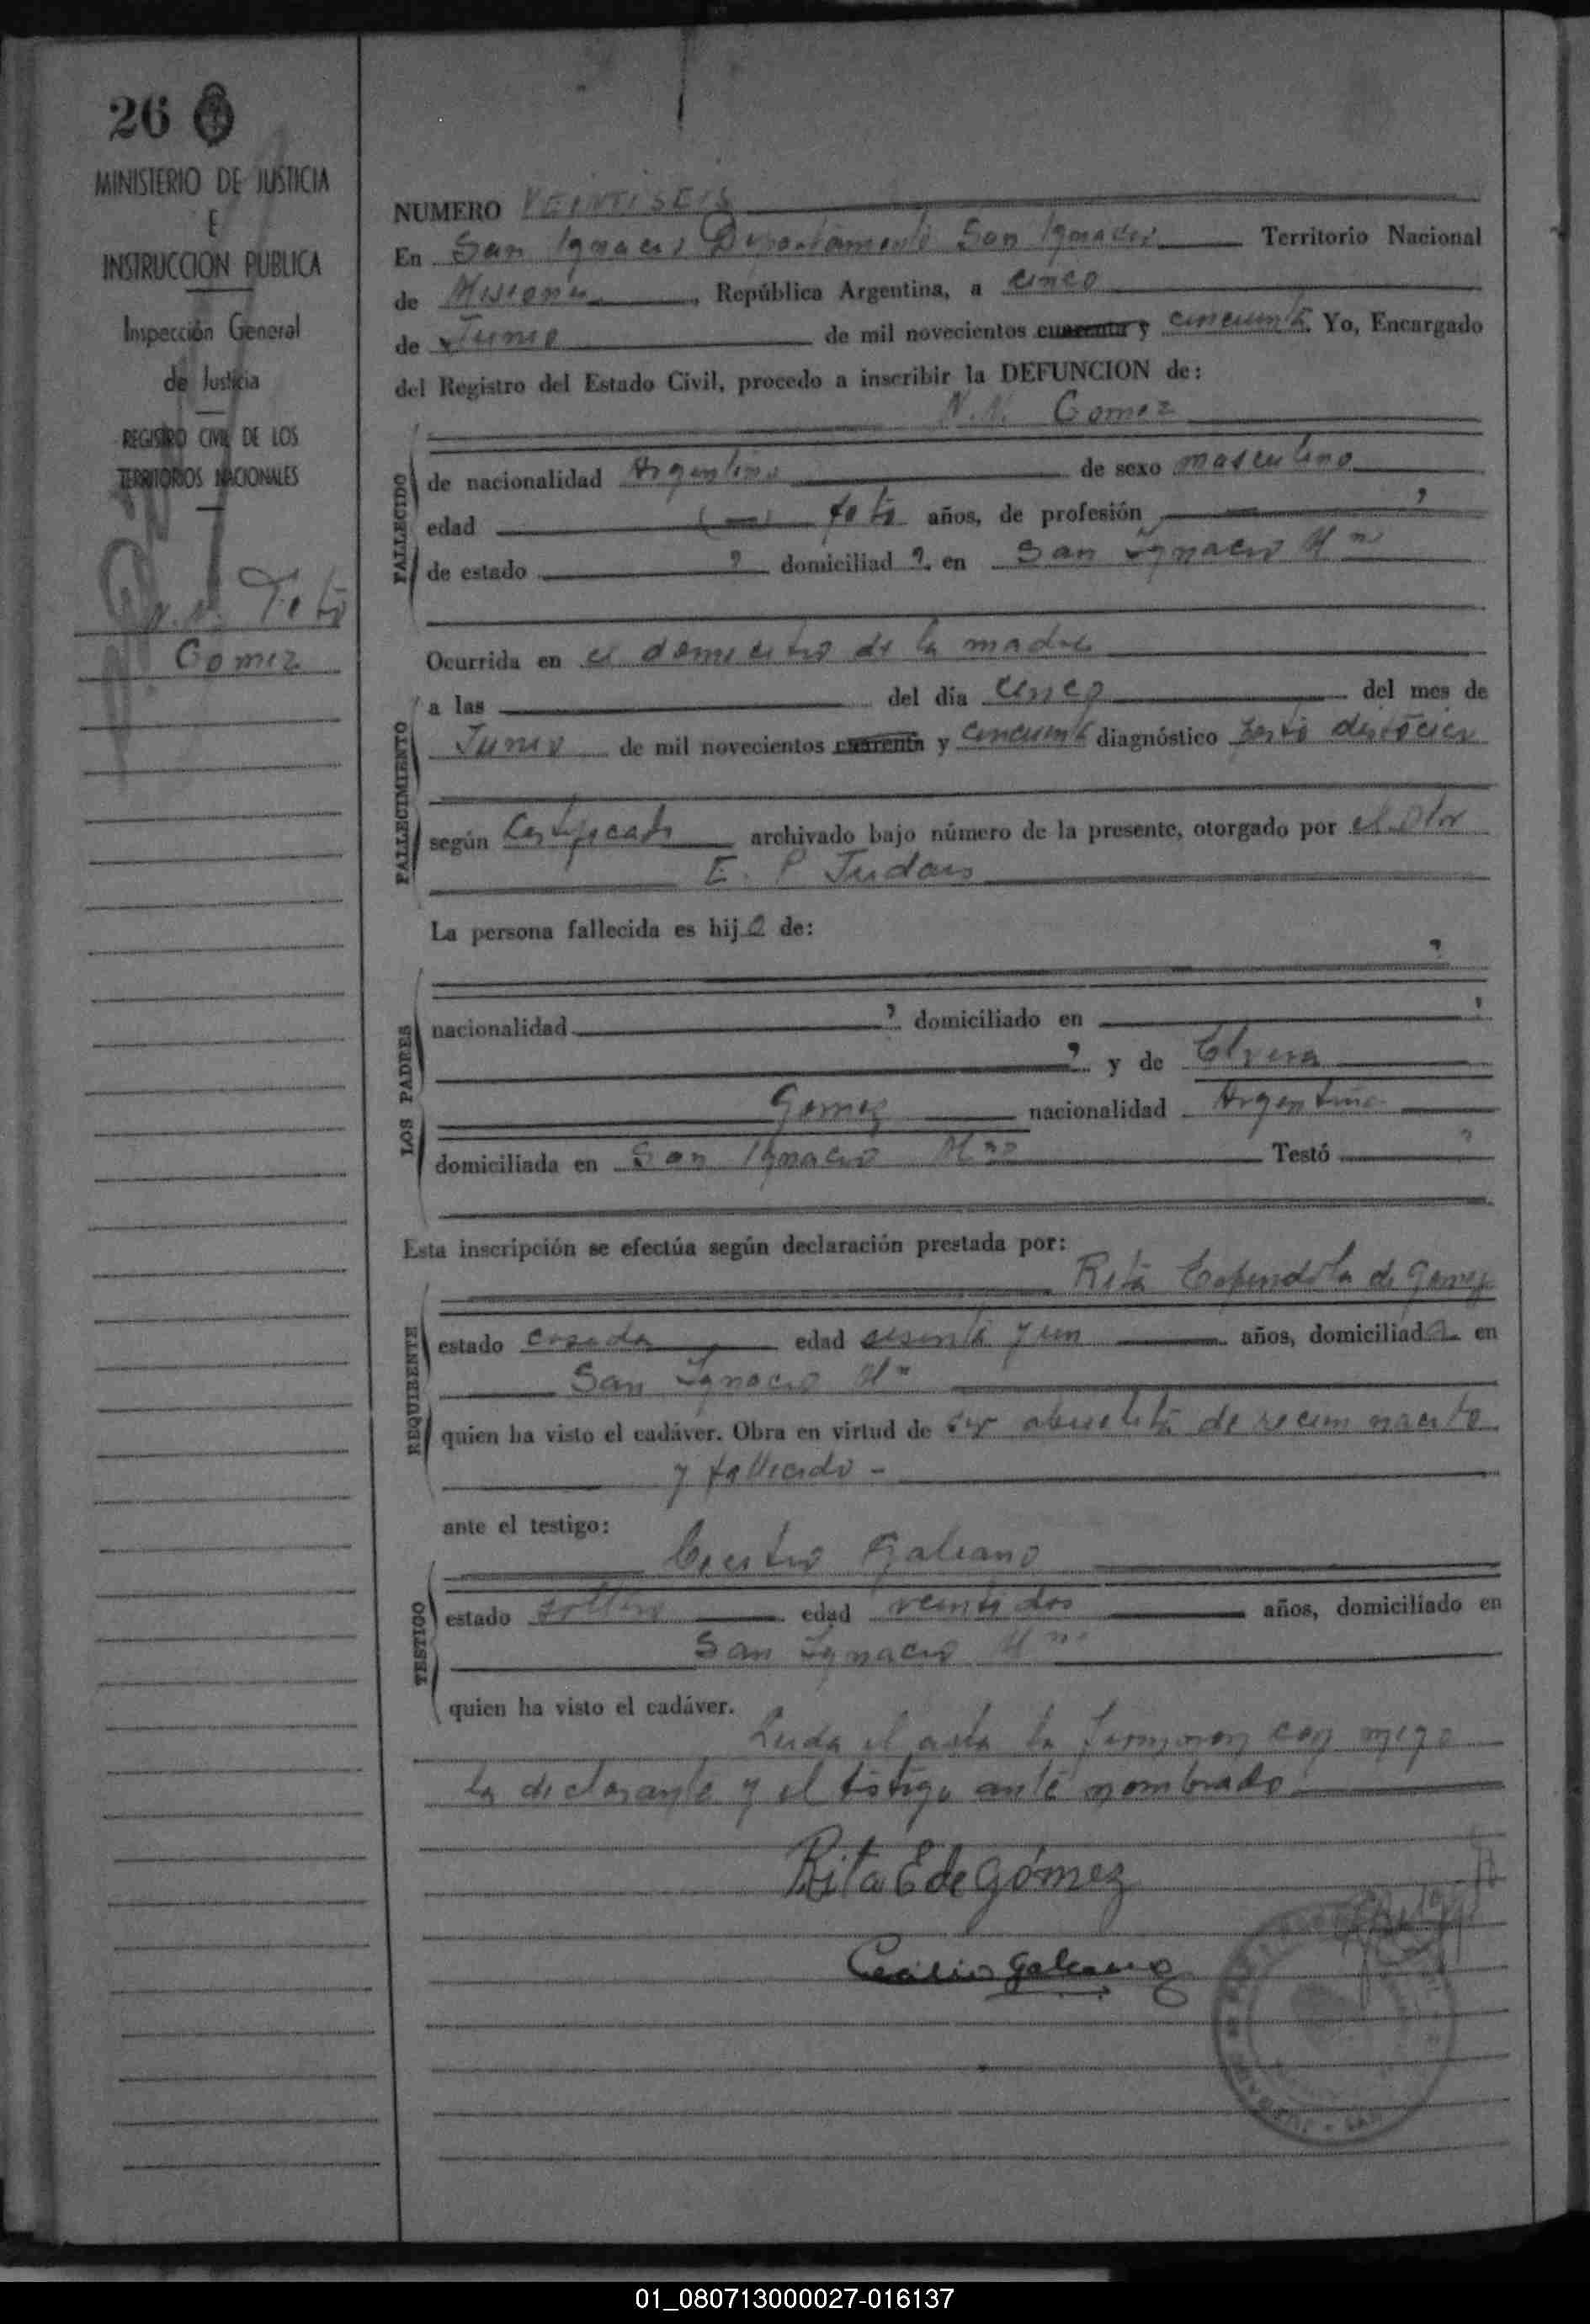 26
MINISTERIO DE JUSTICIA
E
INSTRUCCION PUBLICA
Inspección General
de Justicia
REGISTRO CIVIL DE LOS
TERRITORIOS NACIONALES
N.N. Feto
Gomez
NUMERO VEINTISEIS
En San Ignacio Departamento San Ignacio Territorio Nacional
de Misiones, República Argentina, a cinco
de Junio de mil novecientos cuarenta y cincuenta. Yo, Encargado
del Registro del Estado Civil, procedo a inscribir la DEFUNCION de:
N.N. Gomez
FALLECIDO
de nacionalidad Argentino de sexo masculino
edad (—) feto años, de profesión ?
de estado ? domiciliad ? en San Ignacio Mnes
Ocurrida en el domicilio de la madre
FALLECIMIENTO
a las del día cinco del mes de
Junio de mil novecientos cuarenta y cincuenta diagnóstico parto distócico
según Certificado archivado bajo número de la presente, otorgado por el Dtor
E. P.
La persona fallecida es hijo de:
?
LOS PADRES
nacionalidad ? domiciliado en ?
? y de Elvira
Gomez nacionalidad Argentina
domiciliada en San Ignacio Mnes Testó ?
Esta inscripción se efectúa según declaración prestada por:
Rita Espindola de Gomez
REQUIRENTE
estado casada edad sesenta y un años, domiciliada en
San Ignacio Mnes
quien ha visto el cadáver. Obra en virtud de ser abuelita de recien nacito
y fallecido -
ante el testigo:
Cecilio Galeano
TESTIGO
estado soltero edad veintidos años, domiciliado en
San Ignacio Mnes
quien ha visto el cadáver.
Leida el acta la firmaron con migo
la declarante y el testigo ante nombrado
Rita E de Gómez
Cecilio Galeano
01_080713000027-016137